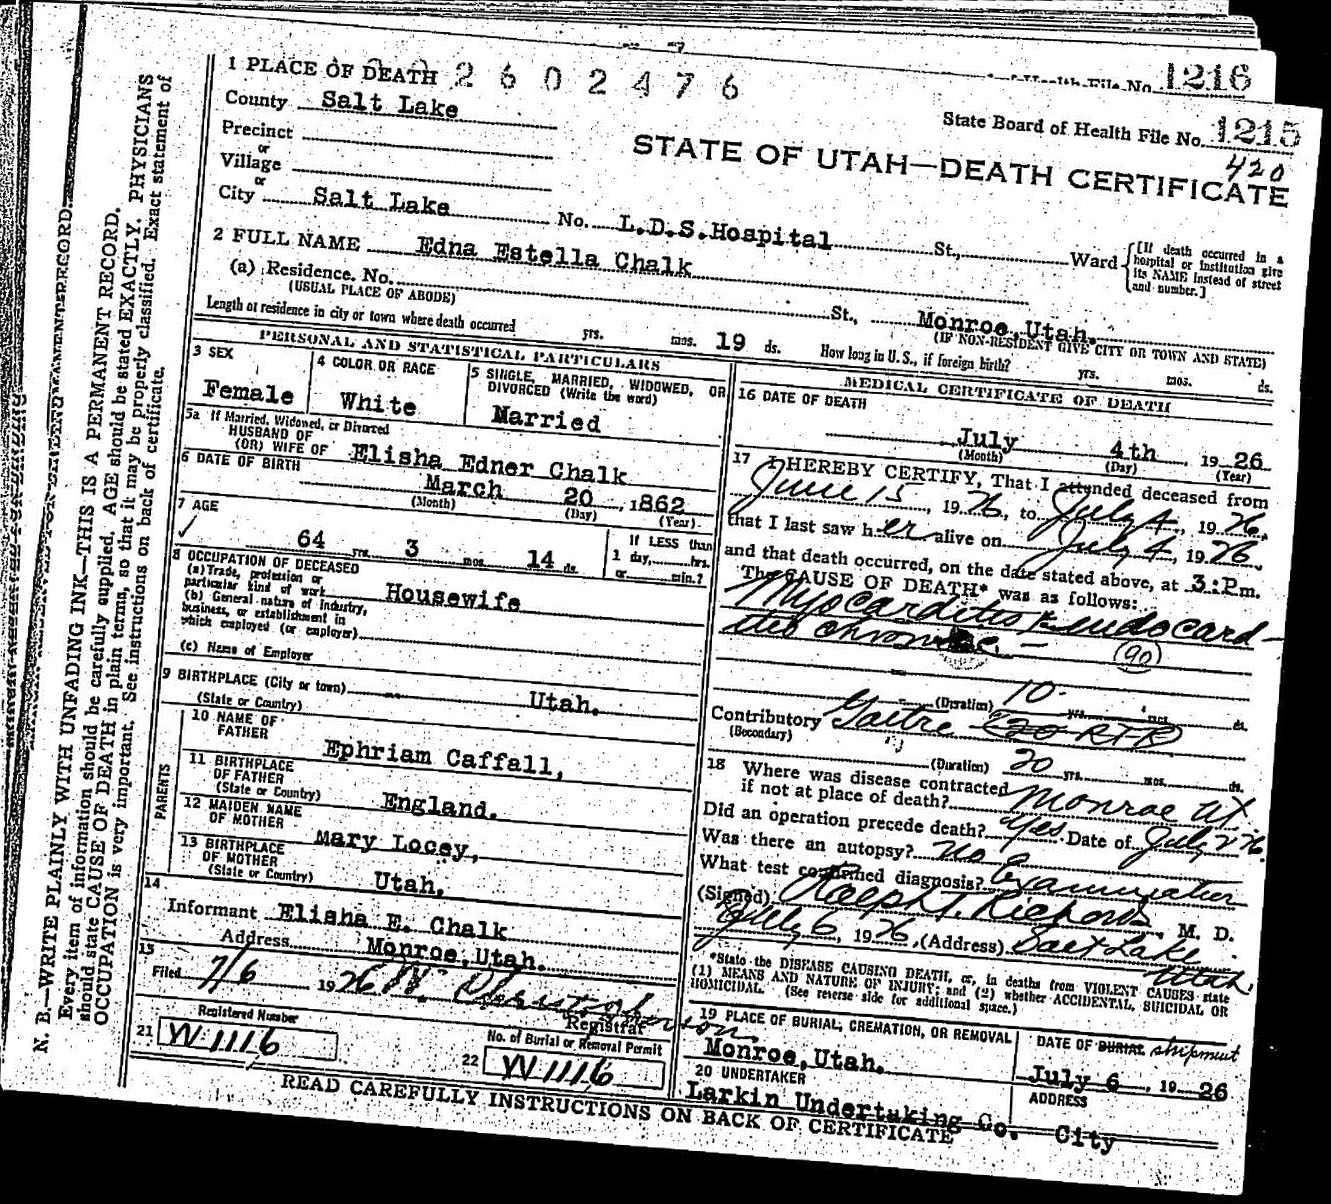 N. B.—WRITE PLAINLY WITH UNFADING INK—THIS IS A PERMANENT RECORD.
Every item of information should be carefully supplied. AGE should be stated EXACTLY. PHYSICIANS
should state CAUSE OF DEATH in plain terms, so that it may be properly classified. Exact statement of
OCCUPATION is very important. See instructions on back of certificate.
Health File No. 1216
2602476
State Board of Health File No. 1215
420
STATE OF UTAH—DEATH CERTIFICATE
1 PLACE OF DEATH
County Salt Lake
Precinct
or
Village
or
City Salt Lake No. L.D.S.Hospital St., Ward
[If death occurred in a hospital or institution give its NAME instead of street and number.]
2 FULL NAME Edna Estella Chalk
(a) Residence. No. St., Monroe,Utah.
(USUAL PLACE OF ABODE) (IF NON-RESIDENT GIVE CITY OR TOWN AND STATE)
Length of residence in city or town where death occurred yrs. mos. 19 ds. How long in U.S., if foreign birth? yrs. mos. ds.
PERSONAL AND STATISTICAL PARTICULARS
3 SEX
Female
4 COLOR OR RACE
White
5 SINGLE, MARRIED, WIDOWED, OR
DIVORCED (Write the word)
Married
5a If Married, Widowed, or Divorced
HUSBAND OF
(OR) WIFE OF Elisha Edner Chalk
6 DATE OF BIRTH
March 20, 1862
(Month) (Day) (Year)
7 AGE
64 yrs. 3 mos. 14 ds.
If LESS than
1 day,......hrs.
or......min.?
8 OCCUPATION OF DECEASED
(a) Trade, profession or
particular kind of work Housewife
(b) General nature of industry,
business, or establishment in
which employed (or employer)
(c) Name of Employer
9 BIRTHPLACE (City or town)
(State or Country) Utah.
PARENTS
10 NAME OF
FATHER Ephriam Caffall,
11 BIRTHPLACE
OF FATHER
(State or Country) England.
12 MAIDEN NAME
OF MOTHER Mary Locey,
13 BIRTHPLACE
OF MOTHER
(State or Country) Utah.
14
Informant Elisha E. Chalk
Address Monroe,Utah.
15
Filed 7/6 1926 W. Christopherson
Registrar
Registered Number
21 W 1116
No. of Burial or Removal Permit
22 W 1116
MEDICAL CERTIFICATE OF DEATH
16 DATE OF DEATH
July 4th, 1926
(Month) (Day) (Year)
17 I HEREBY CERTIFY, That I attended deceased from
June 15, 1926, to July 4, 1926,
that I last saw her alive on July 4, 1926,
and that death occurred, on the date stated above, at 3:Pm.
The CAUSE OF DEATH* was as follows:
Myocarditis & endocard-
itis chronic —
90
(Duration) 10 yrs. mos. ds.
Contributory Goitre RTR
(Secondary)
(Duration) 20 yrs. mos. ds.
18 Where was disease contracted
if not at place of death? Monroe Ut
Did an operation precede death? Yes Date of July 2 26
Was there an autopsy? No
What test confirmed diagnosis? Examination
(Signed) Ralph T. Richards, M. D.
July 6, 1926, (Address) Salt Lake
Utah
*State the DISEASE CAUSING DEATH, or, in deaths from VIOLENT CAUSES state
(1) MEANS AND NATURE OF INJURY; and (2) whether ACCIDENTAL, SUICIDAL OR
HOMICIDAL. (See reverse side for additional space.)
19 PLACE OF BURIAL, CREMATION, OR REMOVAL
Monroe,Utah.
DATE OF BURIAL shipment
July 6, 1926
20 UNDERTAKER
Larkin Undertaking Co.
ADDRESS
City
READ CAREFULLY INSTRUCTIONS ON BACK OF CERTIFICATE